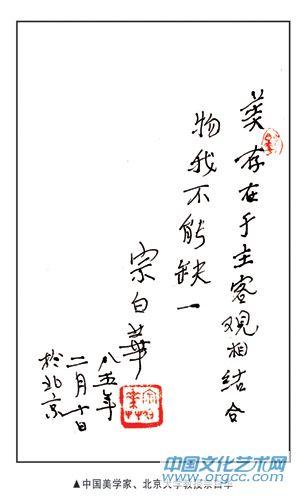 美存在于主客观相结合
物我不能缺一
宗白華
八五年
二月十日
於北京
▲中国美学家、北京大学教授宗白华
中国文化艺术网
www.orgcc.com